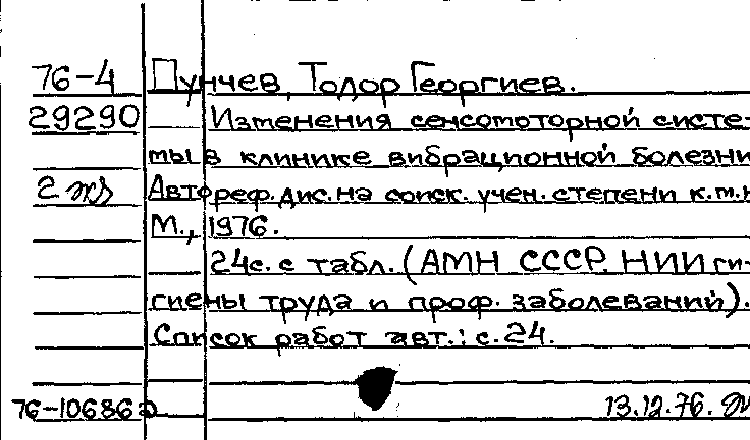 76-4 Пунчев, Тодор Георгиев.
29290 Изменения сенсомоторной систе-
мы в клинике вибрационной болезни
2 Автореф. дис. на соиск. учен. степени к.м.н
М., 1976.
24с. с табл. (АМН СССР. НИИ ги-
гиены труда и проф. заболеваний).
Список работ авт.: с. 24.
76-10686 13.12.76.